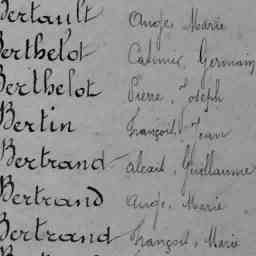 Bertault Ange, Marie
Berthelot Casimir, Germain
Berthelot Pierre, Joseph
Bertin François, Jean
Bertrand Alexis, Guillaume
Bertrand Ange, Marie
Bertrand François, Marie